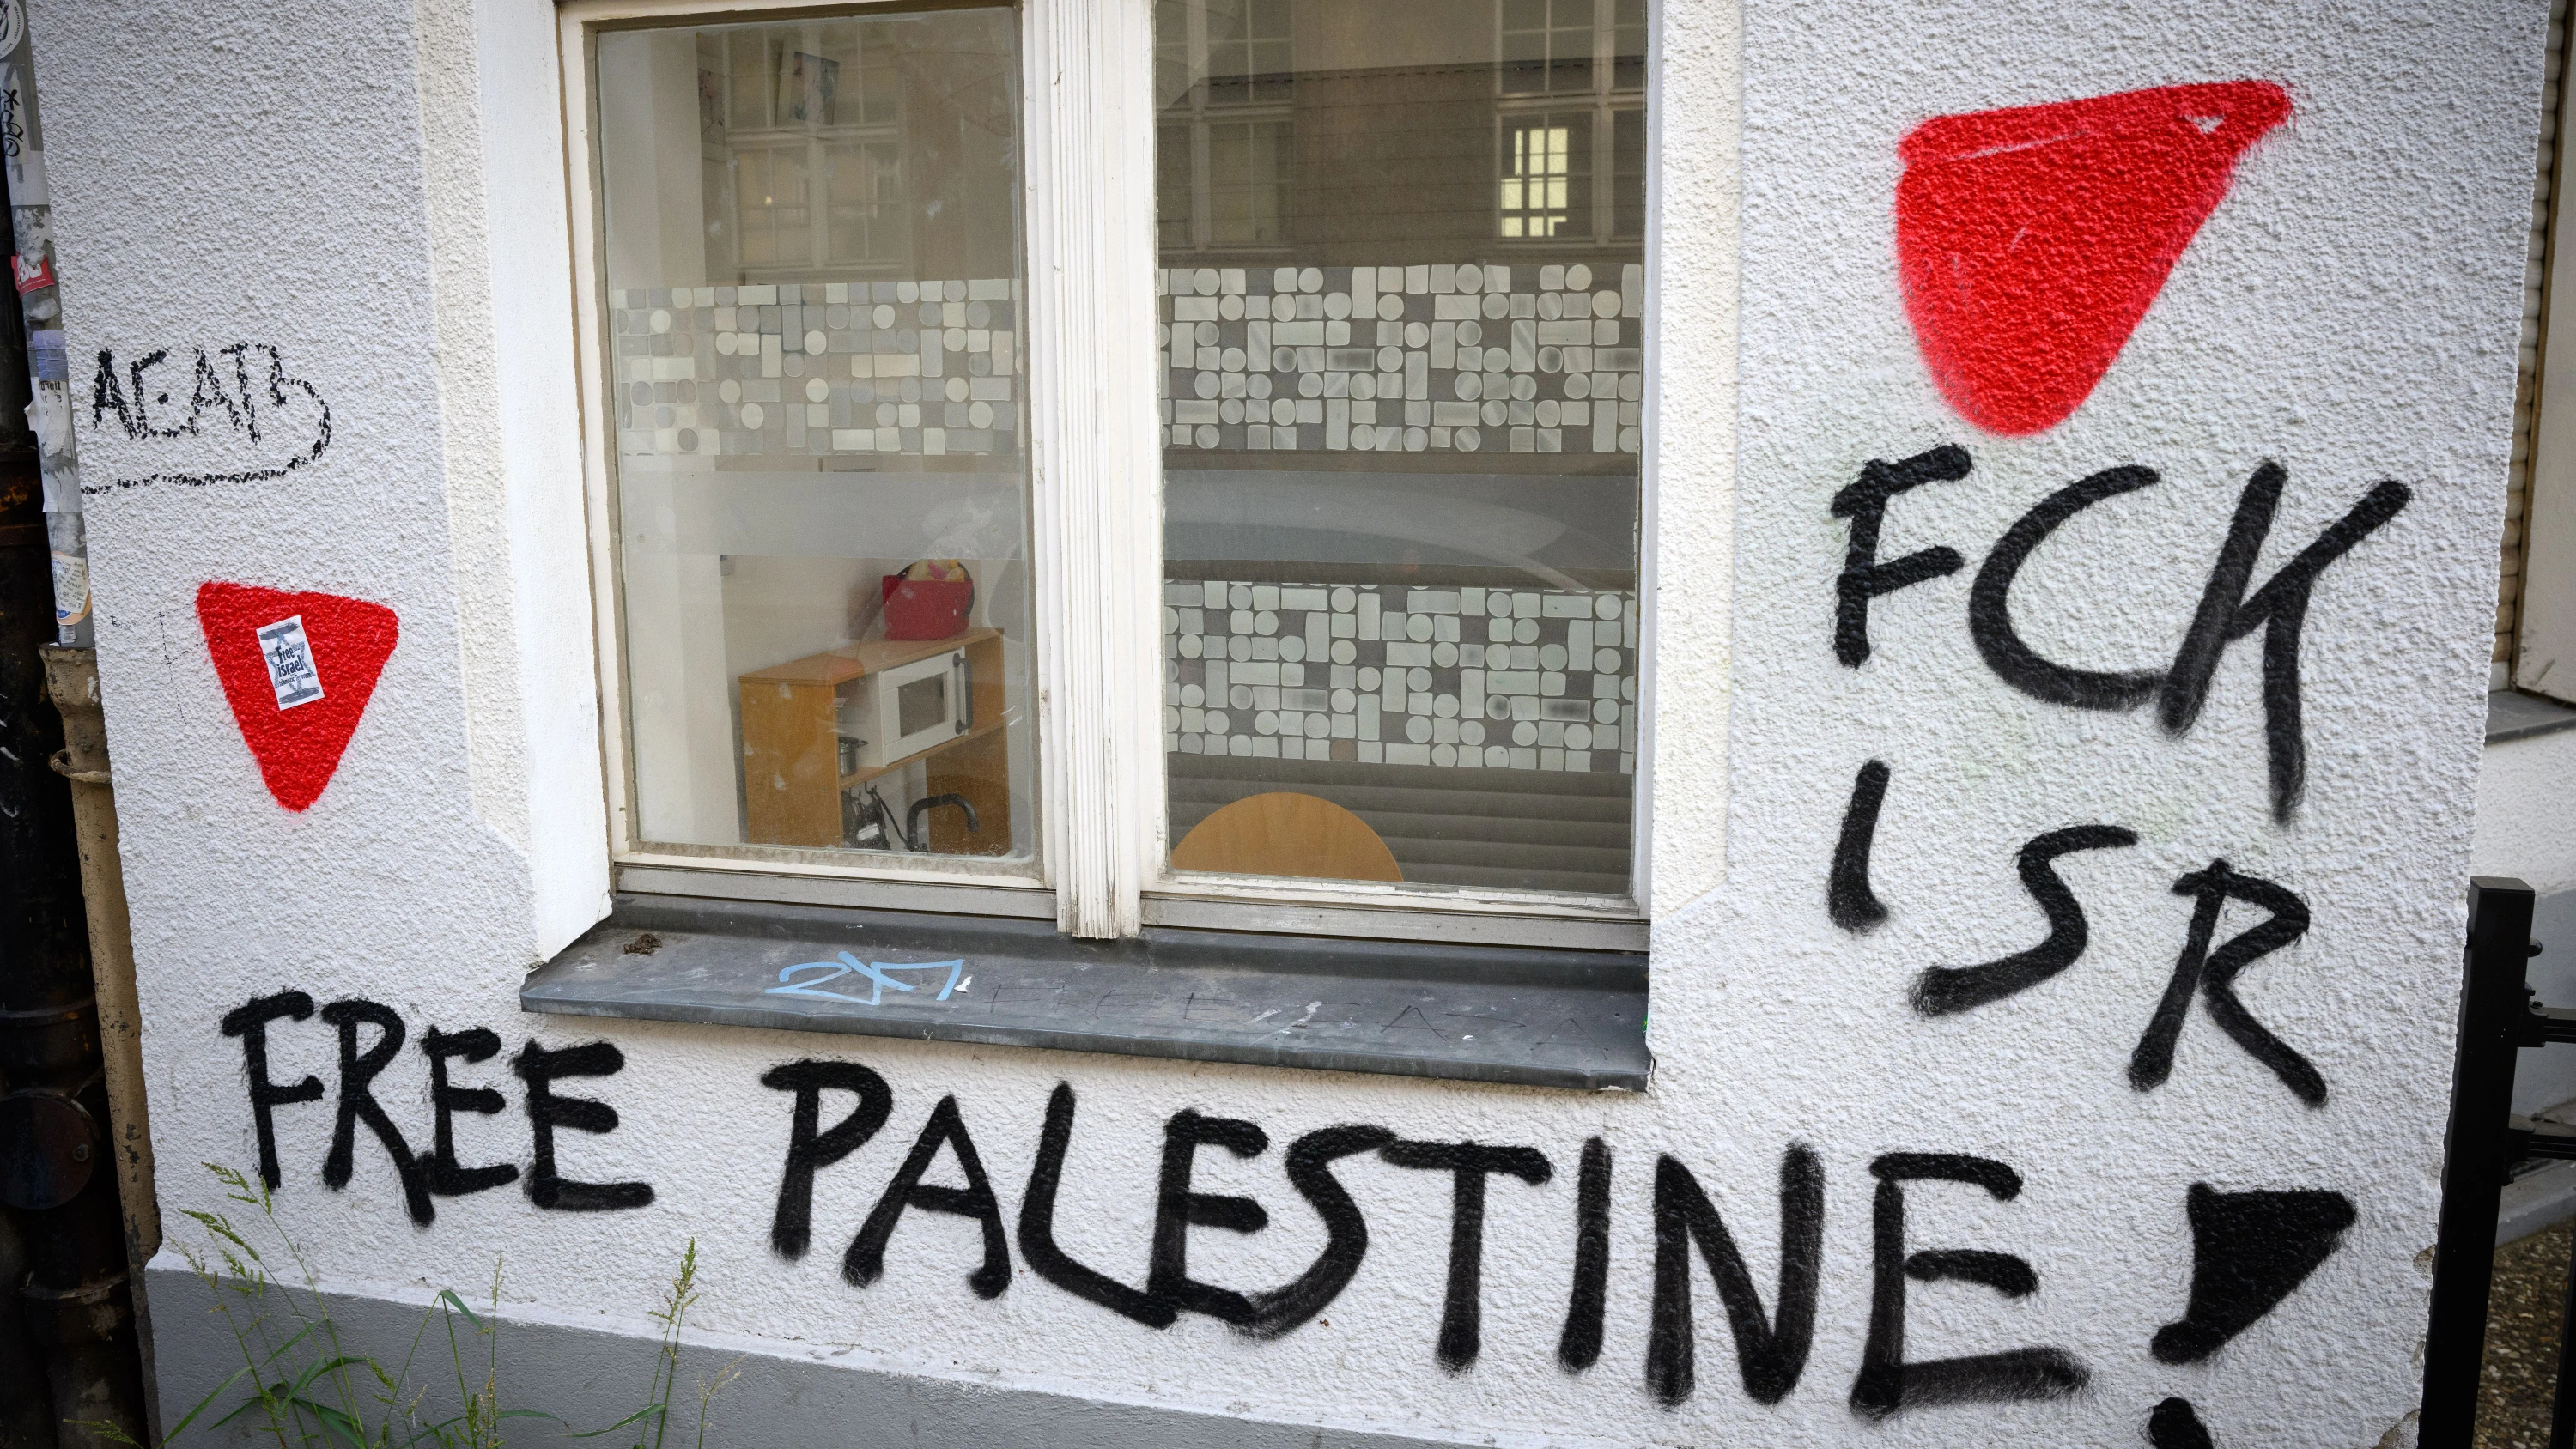 AEATB
Free
israel
FCK
ISR
FREE PALESTINE!